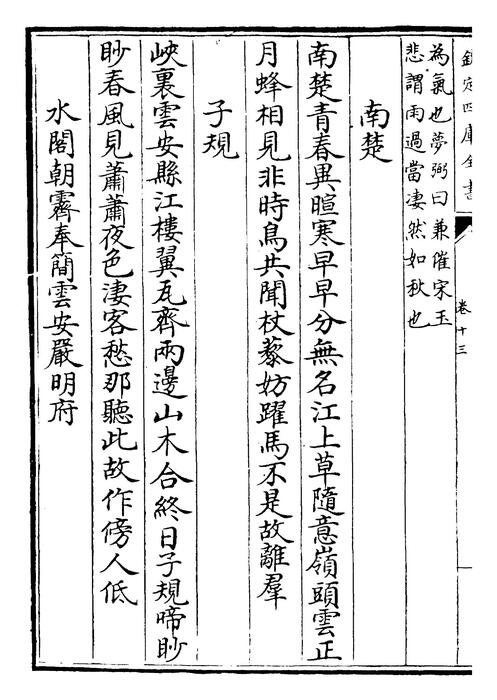 欽定四庫全書
卷十三
為氣也夢弼曰兼催宋玉
悲謂雨過當淒然如秋也
南楚
南楚青春異暄寒早早分無名江上草隨意嶺頭雲正
月蜂相見非時鳥共聞杖藜妨躍馬不是故離羣
子規
峽裏雲安縣江樓翼瓦齊兩邊山木合終日子規啼眇
眇春風見蕭蕭夜色淒客愁那聽此故作傍人低
水閣朝霽奉簡雲安嚴明府